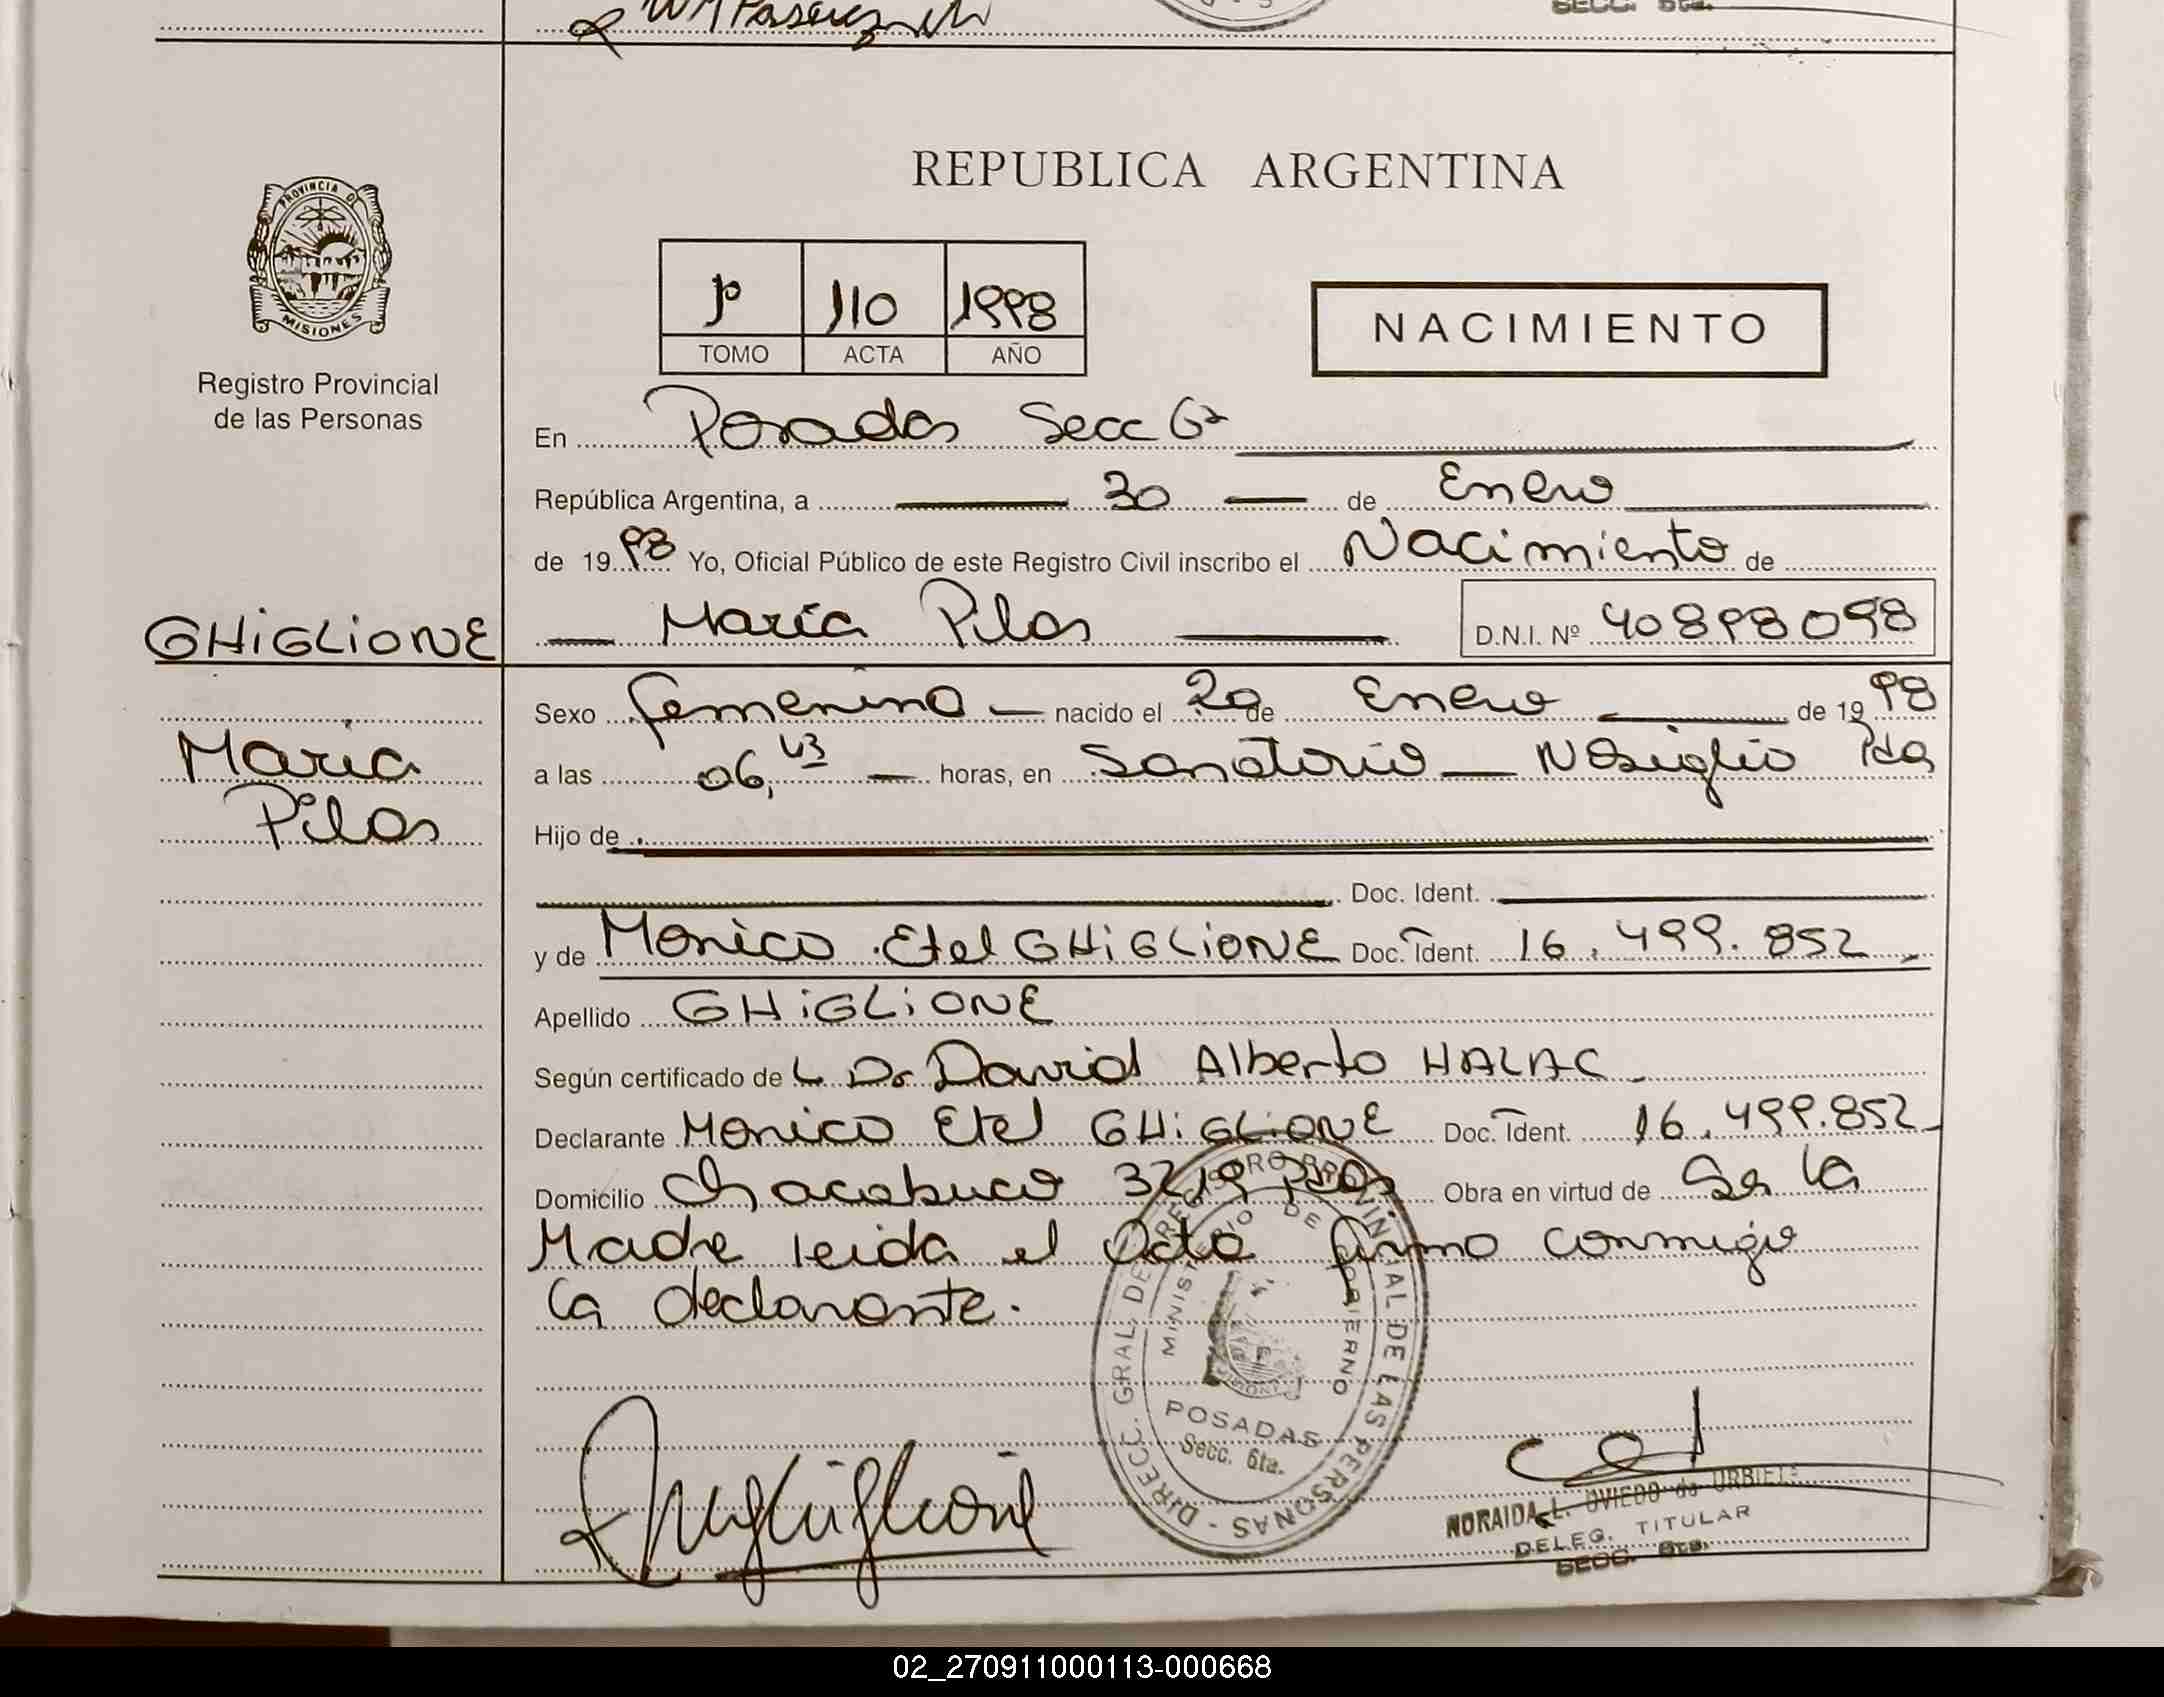 SECC. 6ta.
PROVINCIA DE
MISIONES
Registro Provincial
de las Personas
REPUBLICA ARGENTINA
1º 110 1998
TOMO ACTA AÑO
NACIMIENTO
En Posadas Secc 6ª
República Argentina, a 30 de Enero
de 1998 Yo, Oficial Público de este Registro Civil inscribo el Nacimiento de
GHIGLIONE
María Pilar D.N.I. Nº 40898098
María
Pilar
Sexo femenino nacido el 20 de Enero de 1998
a las 06,43 horas, en Sanatorio Nosiglio Pdas
Hijo de
Doc. Ident.
y de Monica Etel GHIGLIONE Doc. Ident. 16.499.852
Apellido GHIGLIONE
Según certificado de L Dr David Alberto HALAC
Declarante Monica Etel GHIGLIONE Doc. Ident. 16.499.852
Domicilio Chacabuco 3219 Pdas Obra en virtud de Ser la
Madre leida el Acta firma conmigo
la declarante.
DIRECC. GRAL. DE REGISTRO PROVINCIAL DE LAS PERSONAS
MINISTERIO DE GOBIERNO
MISIONES
POSADAS
Secc. 6ta.
NORAIDA L. OVIEDO de URBIETA
DELEG. TITULAR
SECC. 6ta.
02_270911000113-000668